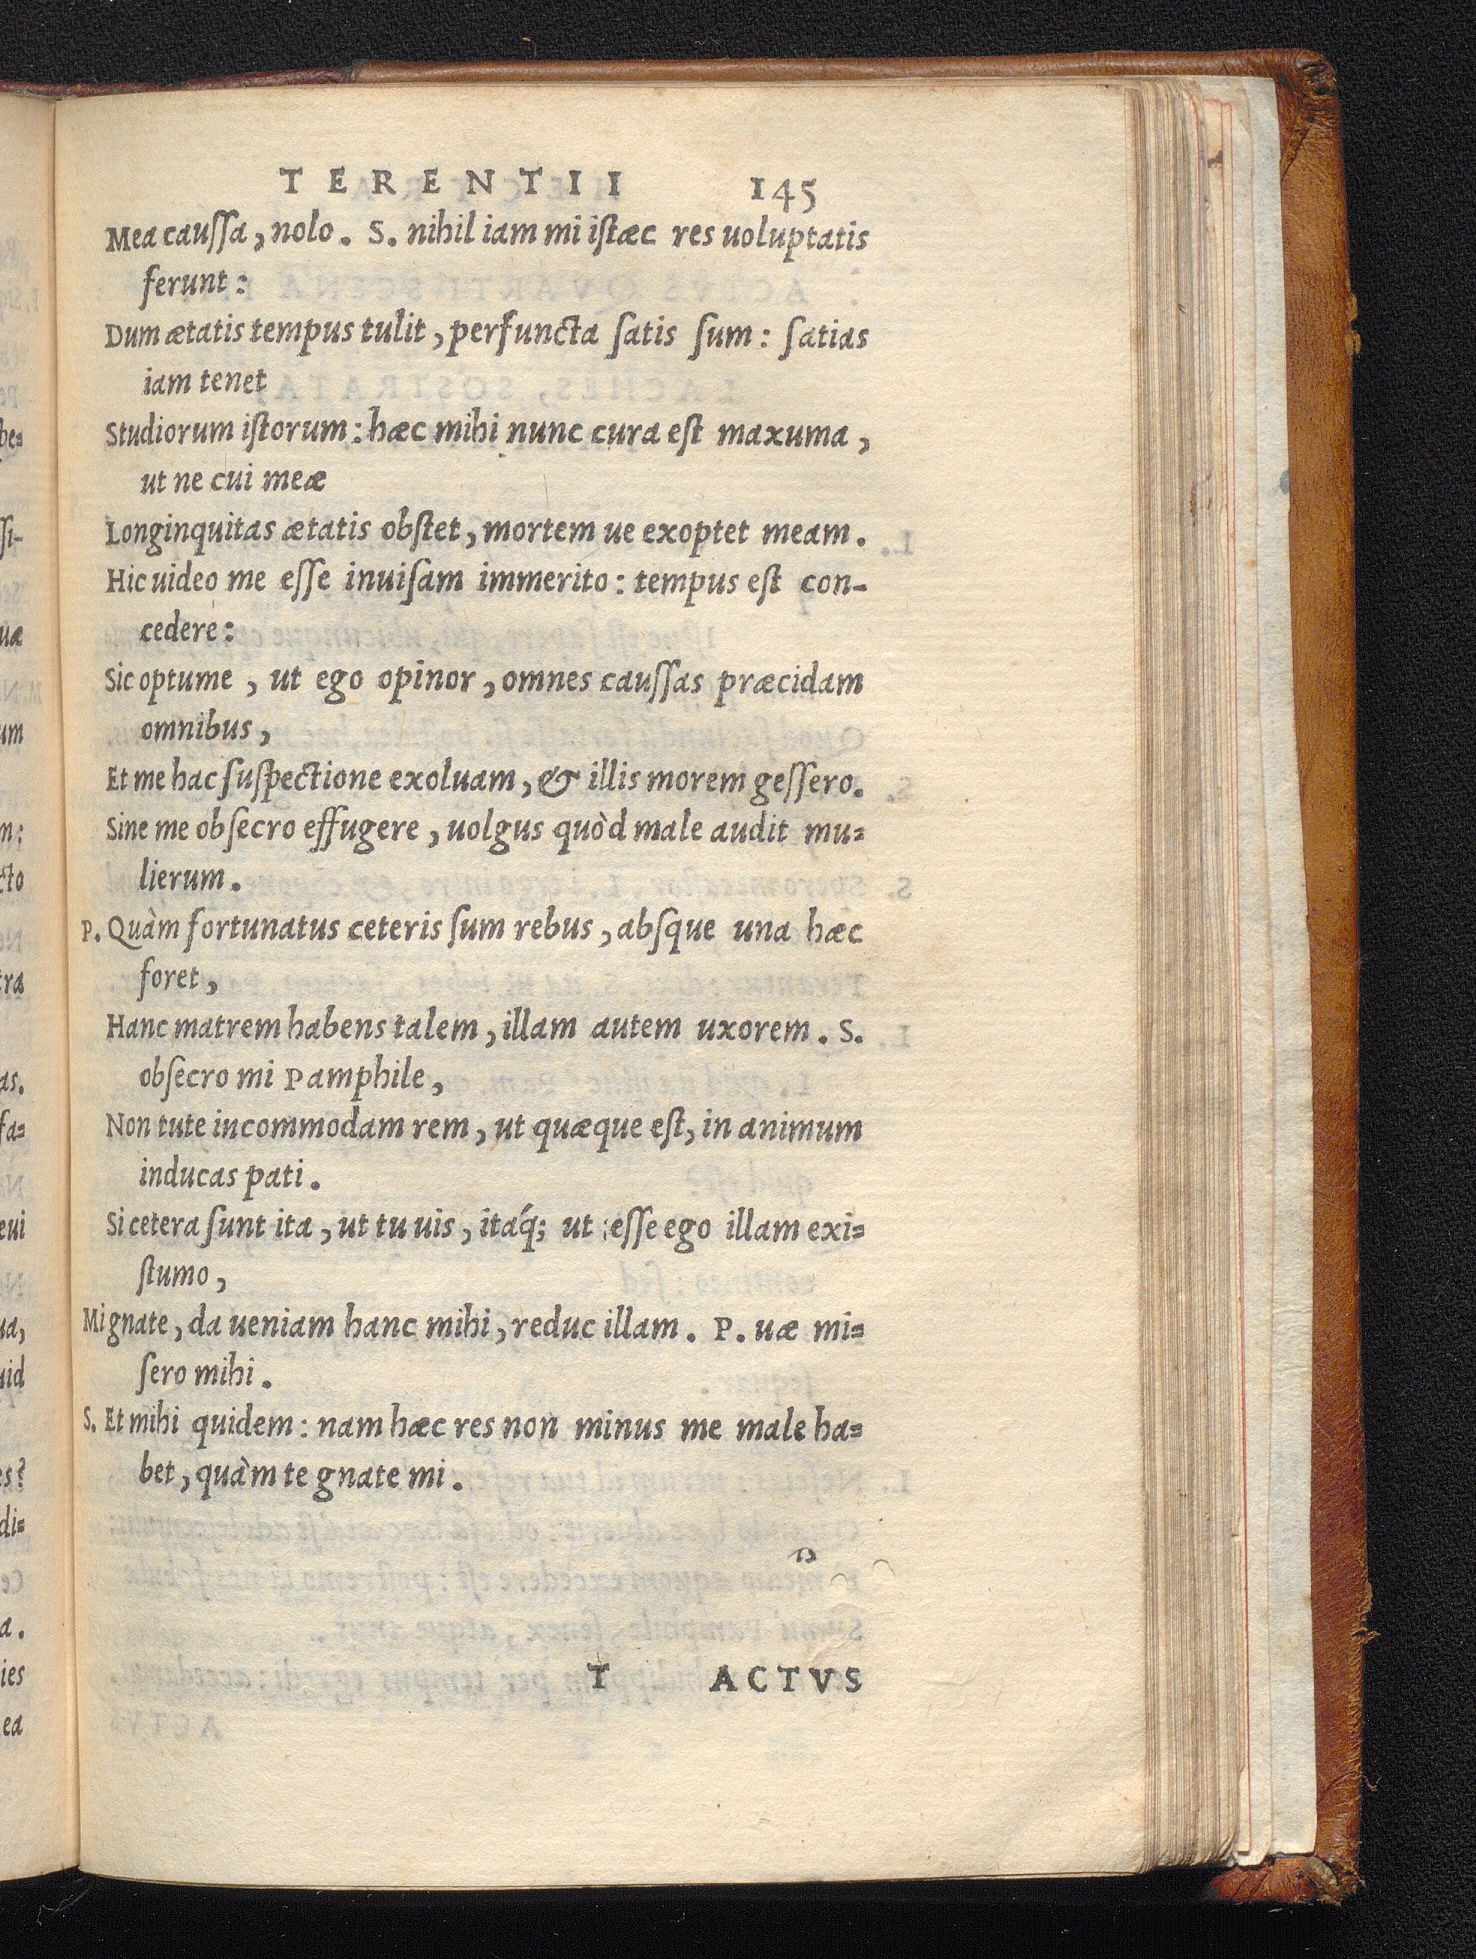 TERENTII 145
Mea caussa, nolo. S. nihil iam mi istæc res uoluptatis
ferunt:
Dum ætatis tempus tulit, perfuncta satis sum: satias
iam tenet
Studiorum istorum: hæc mihi nunc cura est maxuma,
ut ne cui meæ
Longinquitas ætatis obstet, mortem ue exoptet meam.
Hic uideo me esse inuisam immerito: tempus est con-
cedere:
Sic optume, ut ego opinor, omnes caussas præcidam
omnibus,
Et me hac suspectione exoluam, & illis morem gessero.
Sine me obsecro effugere, uolgus quòd male audit mu-
lierum.
P. Quàm fortunatus ceteris sum rebus, absque una hæc
foret,
Hanc matrem habens talem, illam autem uxorem. S.
obsecro mi Pamphile,
Non tute incommodam rem, ut quæque est, in animum
inducas pati.
Si cetera sunt ita, ut tu uis, itaq́; ut esse ego illam exi-
stumo,
Mi gnate, da ueniam hanc mihi, reduc illam. P. uæ mi-
sero mihi.
S. Et mihi quidem: nam hæc res non minus me male ha-
bet, quàm te gnate mi.
T ACTVS